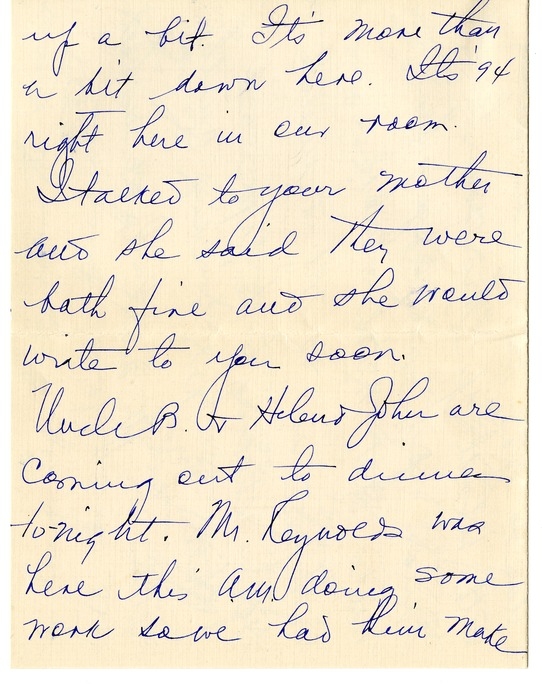 up a bit. It's more than
a bit down here. It's 94
right here in our room.
I talked to your mother
and she said they were
both fine and she would
write to you soon.
Uncle B. + Helen & John are
coming out to dinner
to-night. Mr. Reynolds was
here this a.m. doing some
work so we had him make